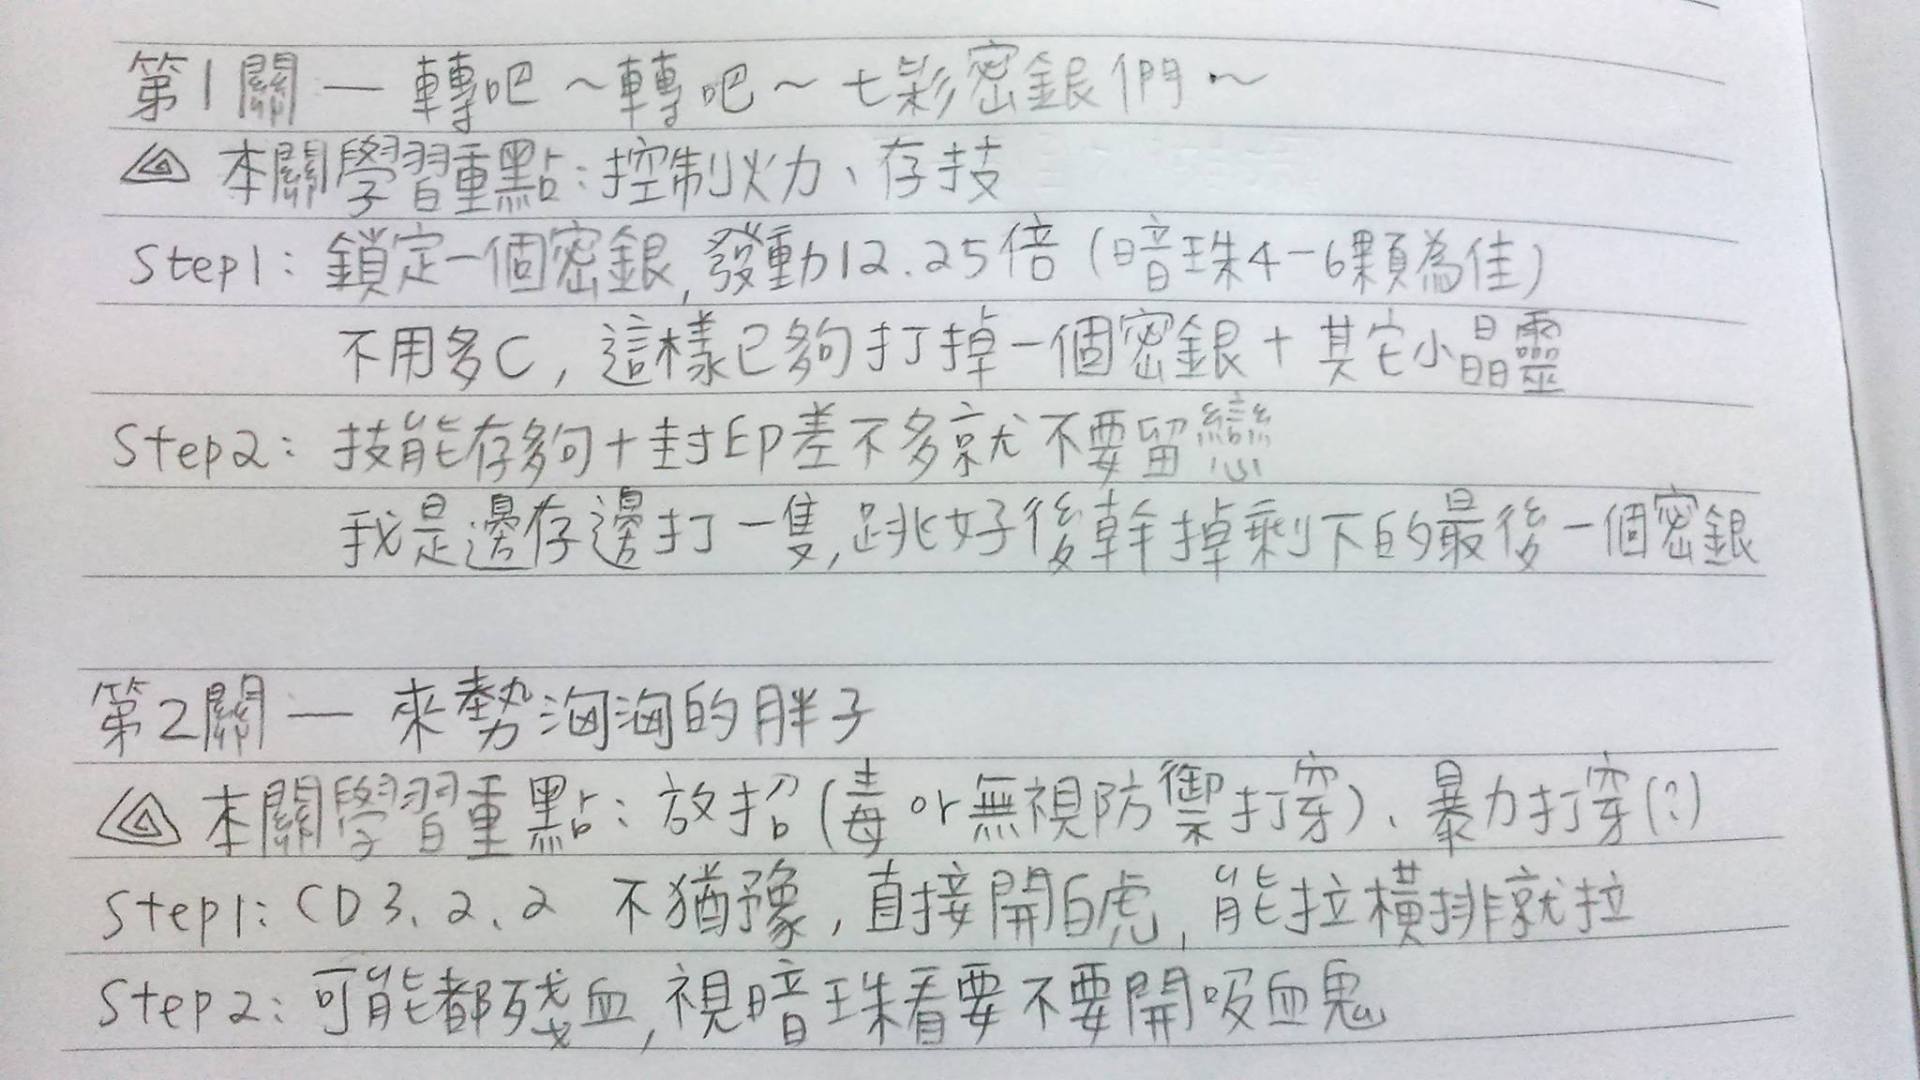 第1關 — 轉吧～轉吧～七彩密銀們～
本關學習重點：控制火力、存技
Step1：鎖定一個密銀,發動12.25倍(暗珠4-6顆為佳)
不用多C,這樣已夠打掉一個密銀+其它小晶靈
Step2：技能存夠+封印差不多就不要留戀
我是邊存邊打一隻,跳好後幹掉剩下的最後一個密銀
第2關 — 來勢洶洶的胖子
本關學習重點：放招(毒or無視防禦打穿)、暴力打穿(?)
Step1：CD3、2、2 不猶豫,直接開白虎,能拉橫排就拉
Step2：可能都殘血,視暗珠看要不要開吸血鬼